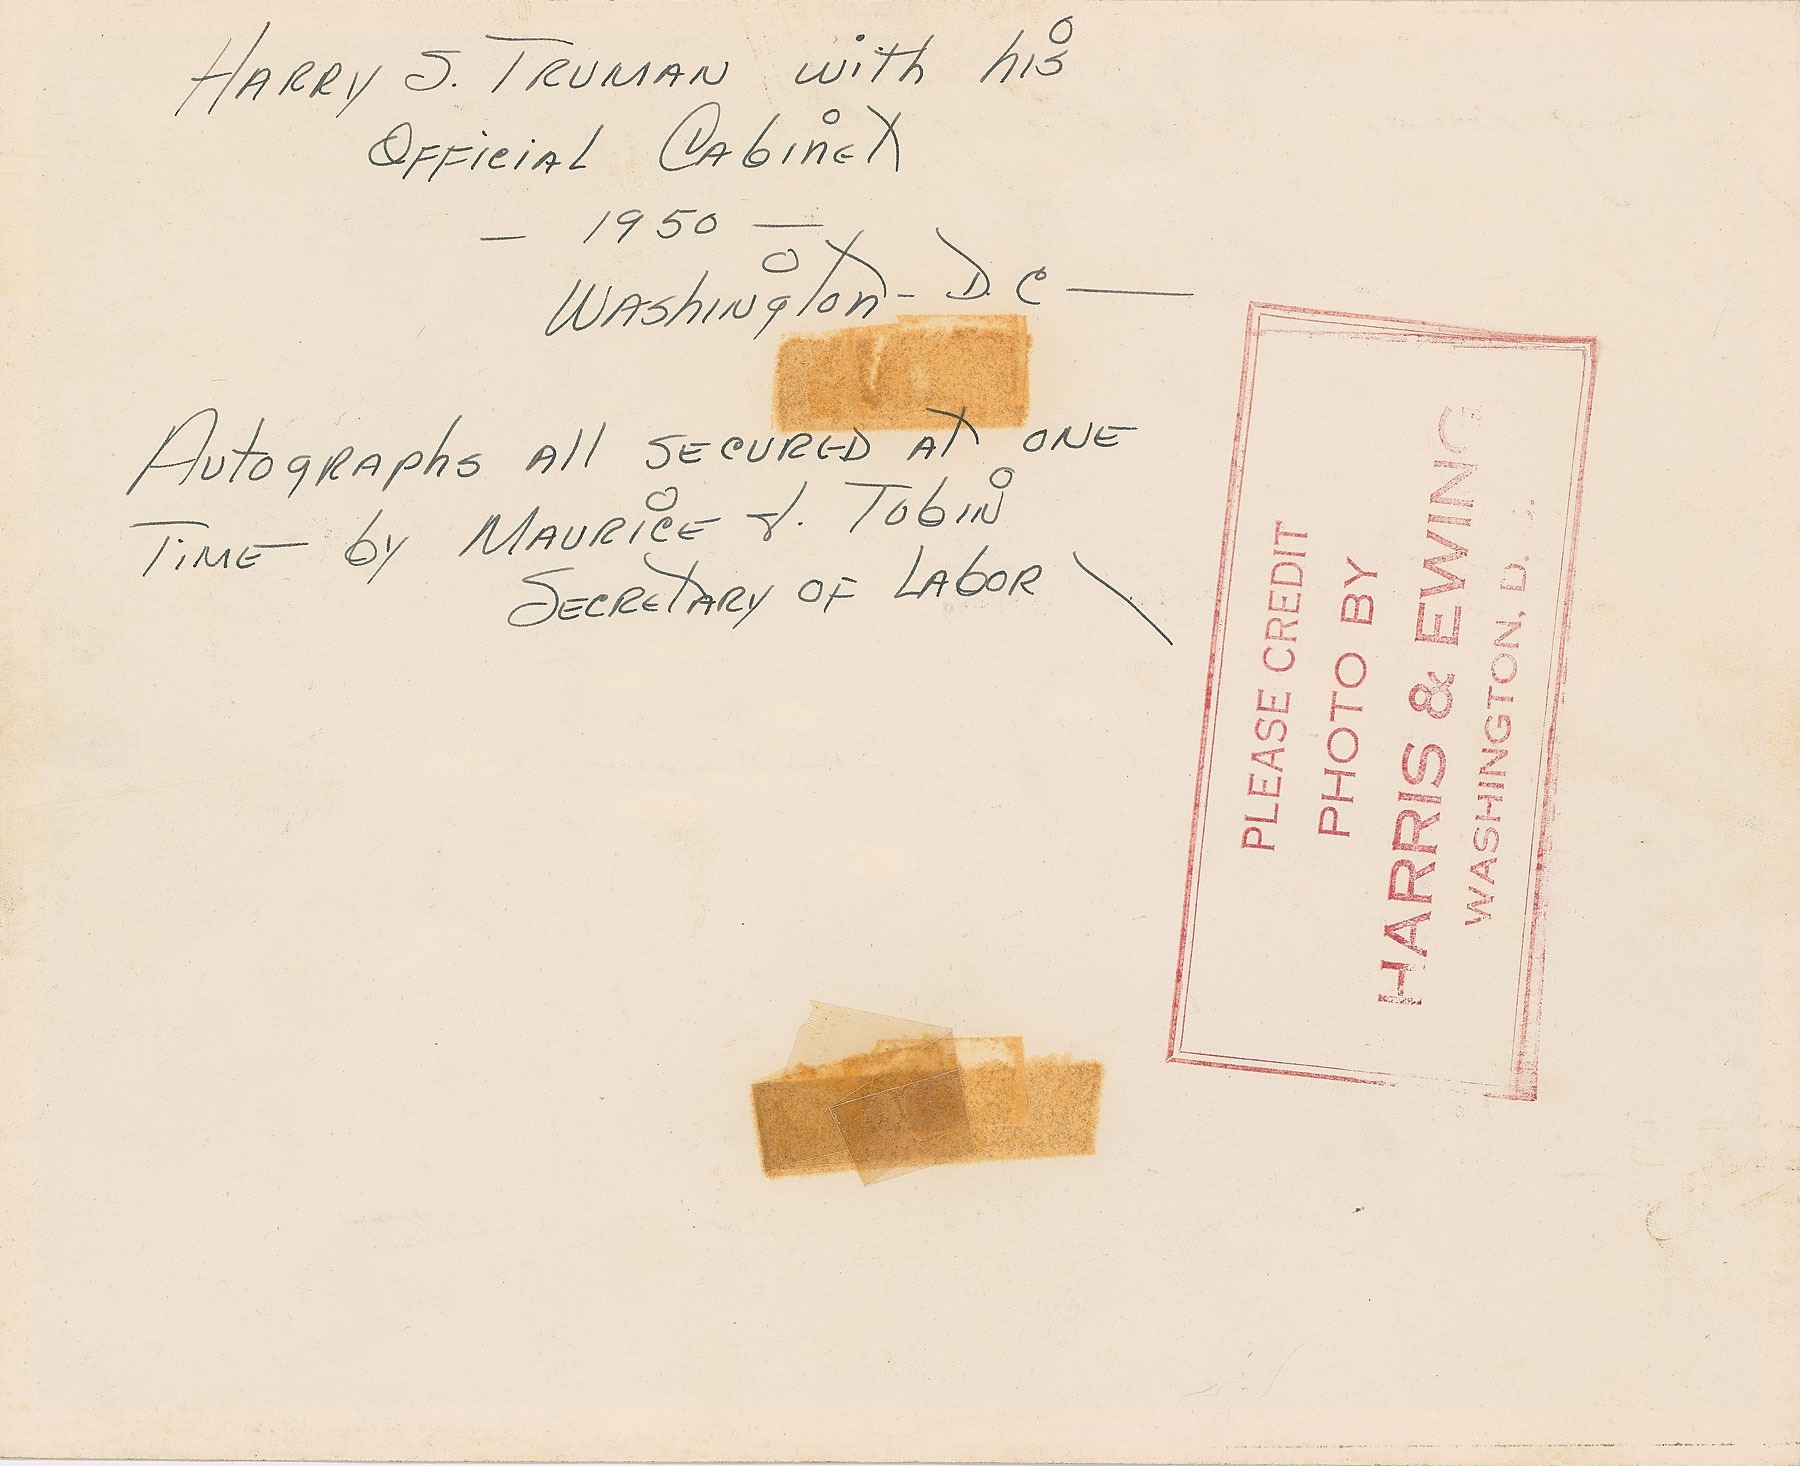 HARRY S. TRUMAN with his
Official Cabinet
— 1950 —
Washington - D.C —
Autographs all secured at one
Time by Maurice J. Tobin
Secretary of Labor
PLEASE CREDIT
PHOTO BY
HARRIS & EWING
WASHINGTON, D. C.